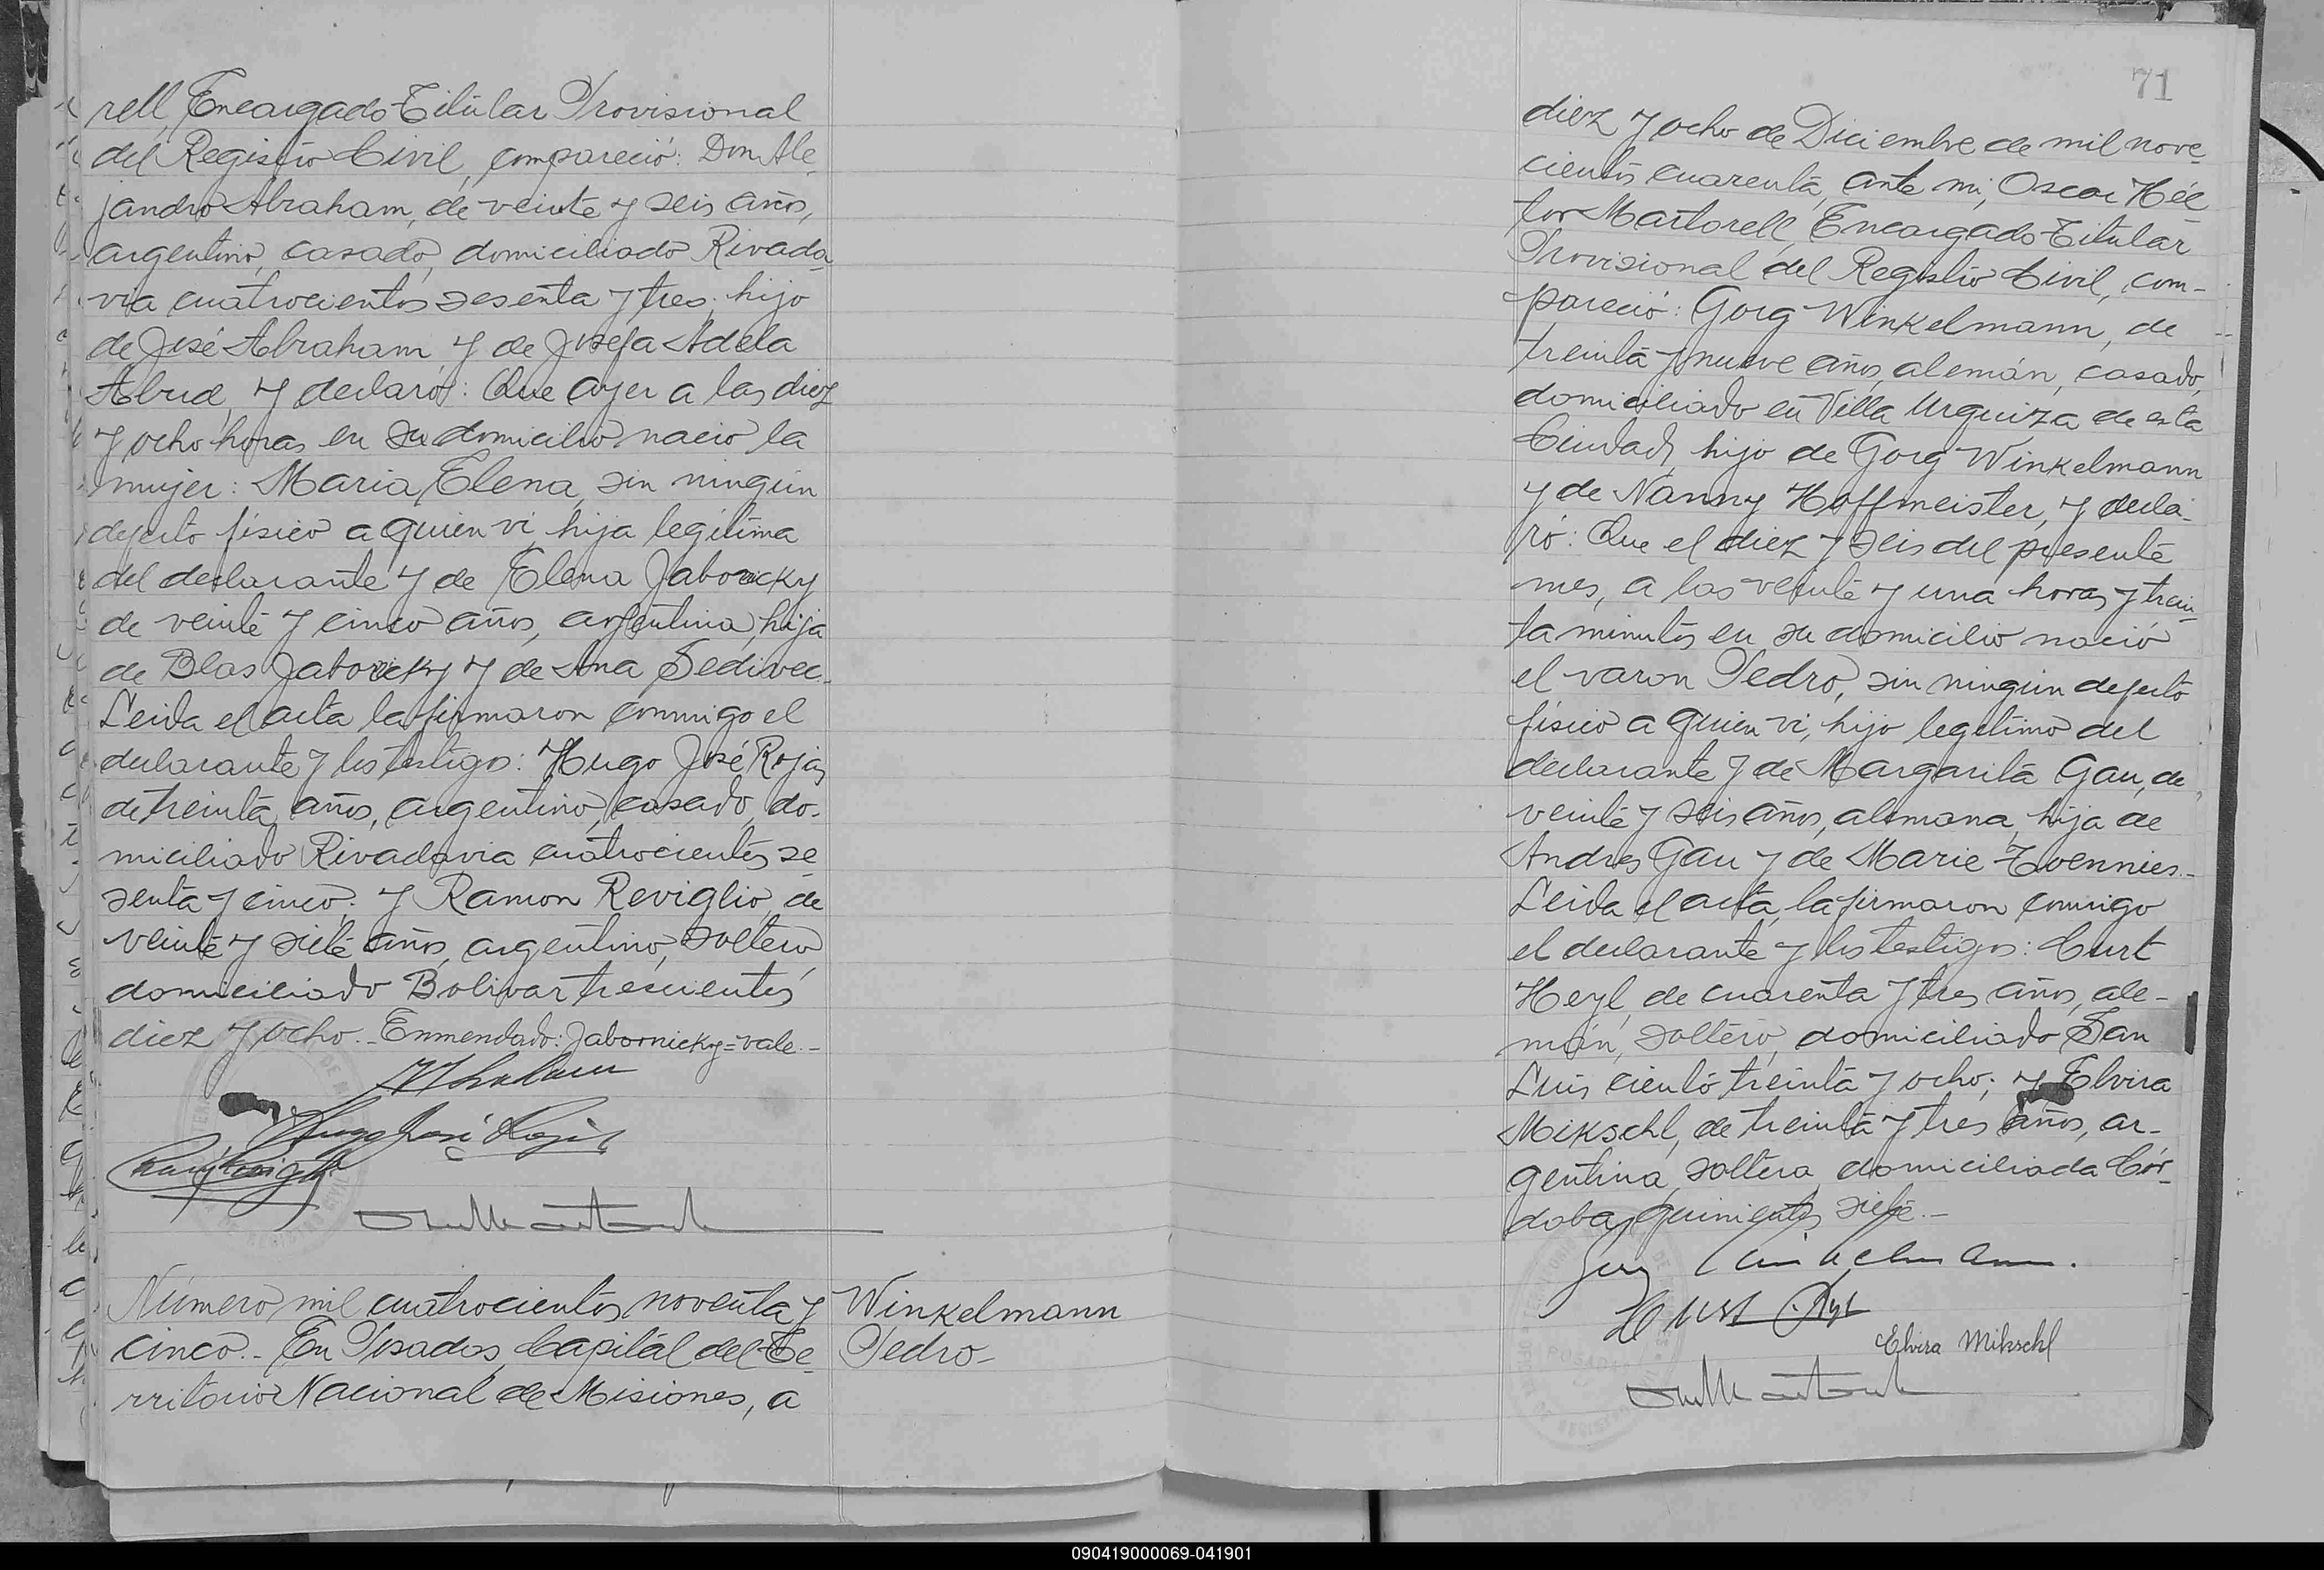 rell, Encargado Titular Provisional
del Registro Civil, compareció: Don Ale-
jandro Abraham, de veinte y seis años,
argentino, casado, domiciliado Rivada-
via cuatrocientos sesenta y tres, hijo
de José Abraham y de Josefa Adela
Abud, y declaró: Que ayer a las diez
y ocho horas en su domicilio nació la
mujer: Maria Elena, sin ningún
defecto físico a quien vi, hija legítima
del declarante y de Elena Jabornicky
de veinte y cinco años, argentina, hija
de Blas Jabornicky y de Ana Sedivec.-
Leida el acta la firmaron conmigo el
declarante y los testigos: Hugo José Rojas
de treinta años, argentino, casado, do-
miciliado Rivadavia cuatrocientos se-
senta y cinco; y Ramon Reviglio, de
veinte y siete años, argentino, soltero
domiciliado Bolivar trescientos
diez y ocho.- Enmendado: Jabornicky=vale.-
Hugo José Rojas
Número mil cuatrocientos noventa y
cinco.- En Posadas, Capital del Te-
rritorio Nacional de Misiones, a
Winkelmann
Pedro-
71
diez y ocho de Diciembre de mil nove-
cientos cuarenta, ante mi, Oscar Héc-
tor Martorell, Encargado Titular
Provisional del Registro Civil, com-
pareció: Gorg Winkelmann, de
treinta y nueve años, alemán, casado,
domiciliado en Villa Urquiza de esta
Ciudad, hijo de Gorg Winkelmann
y de Nanny Hoffmeister, y decla-
ró: Que el diez y seis del presente
mes, a las veinte y una horas y trein-
ta minutos en su domicilio nació
el varon Pedro, sin ningún defecto
físico a quien vi, hijo legítimo del
declarante y de Margarita Gau, de
veinte y seis años, alemana, hija de
Andres Gau y de Marie Toennies.-
Leida el acta, la firmaron conmigo
el declarante y los testigos: Curt
Heyl, de cuarenta y tres años, ale-
mán, soltero, domiciliado San
Luis ciento treinta y ocho; y Elvira
Mikschl, de treinta y tres años, ar-
gentina, soltera, domiciliada Cór-
doba, quinientos siete.-
Winkelmann.
Elvira Mikschl
POSADAS
090419000069-041901